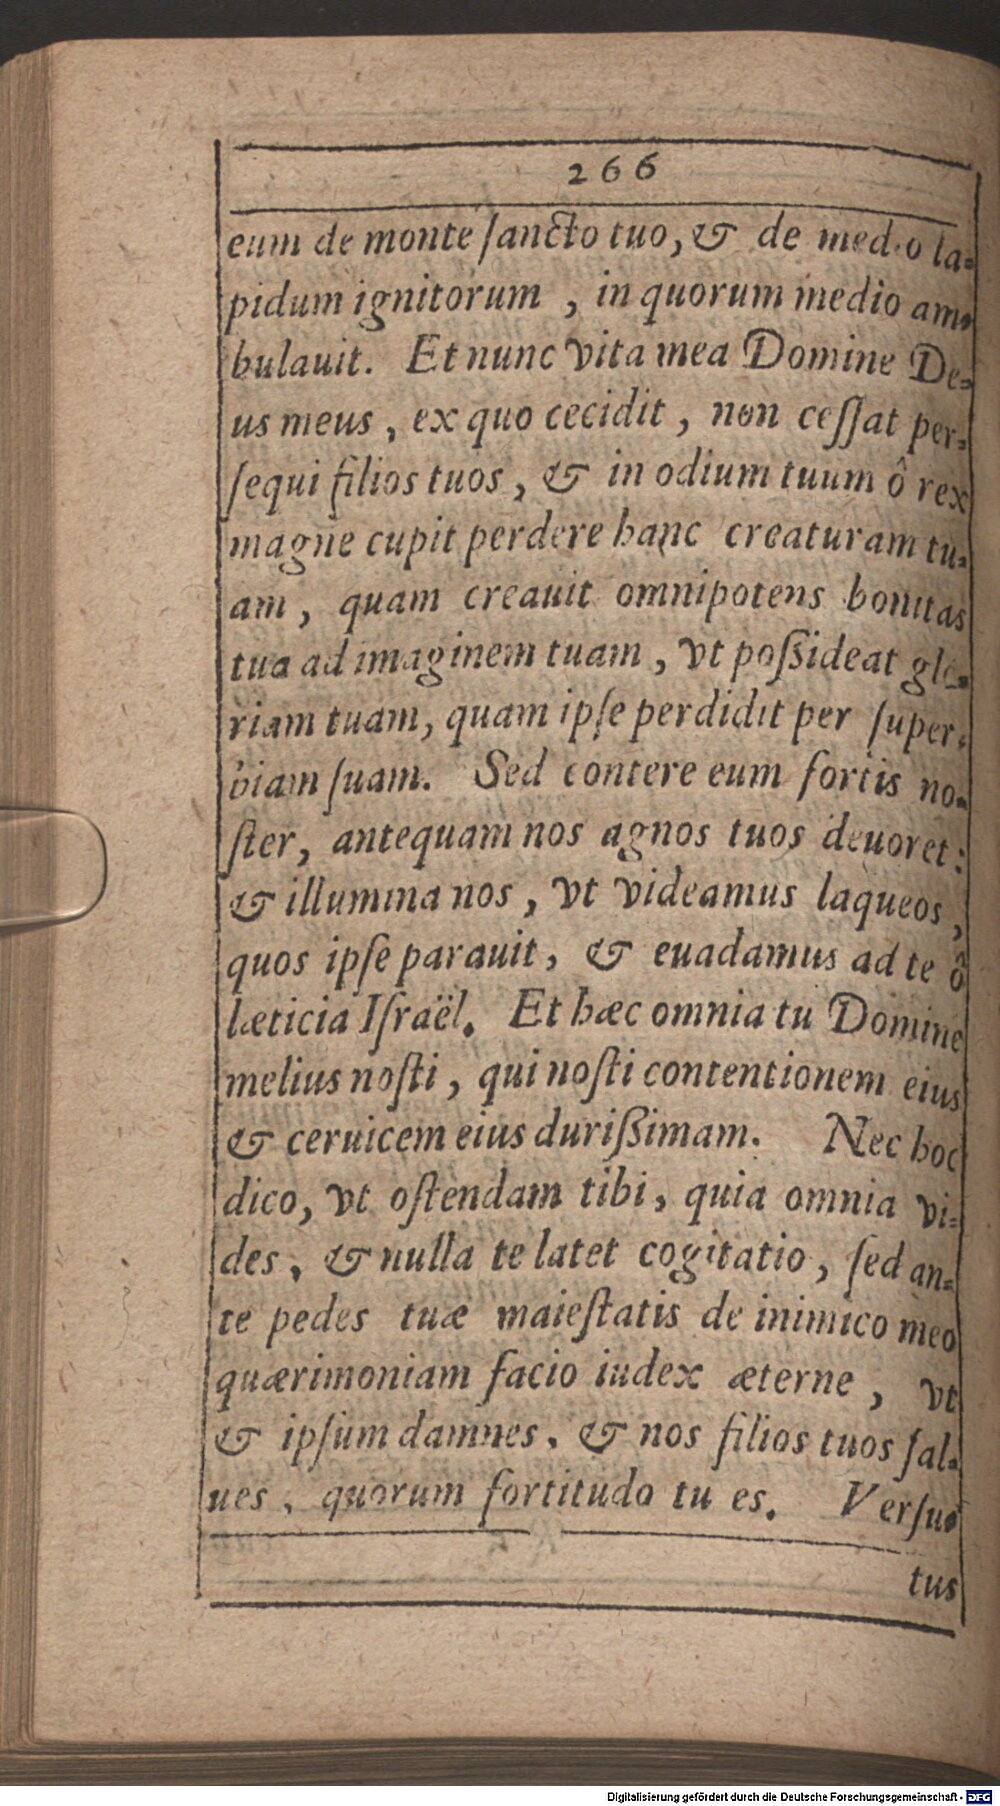 266
eum de monte ſancto tuo, & de medio la-
pidum ignitorum , in quorum medio am-
bulauit. Et nunc vita mea Domine De-
us meus , ex quo cecidit , non ceſſat per-
ſequi filios tuos , & in odium tuum ô rex
magne cupit perdere hanc creaturam tu-
am , quam creauit omnipotens bonitas
tua ad imaginem tuam , vt poſſideat glo-
riam tuam, quam ipſe perdidit per ſuper-
biam ſuam. Sed contere eum fortis no-
ſter, antequam nos agnos tuos deuoret :
& illumina nos , vt videamus laqueos ,
quos ipſe parauit, & euadamus ad te ô
læticia Iſraël. Et hæc omnia tu Domine
melius noſti , qui noſti contentionem eius
& ceruicem eius duriſſimam. Nec hoc
dico, vt oſtendam tibi, quia omnia vi-
des, & nulla te latet cogitatio , ſed an-
te pedes tuæ maieſtatis de inimico meo
quærimoniam facio iudex æterne , vt
& ipſum damnes, & nos filios tuos ſal-
ues , quorum fortitudo tu es. Verſu-
tus
Digitalisierung gefördert durch die Deutsche Forschungsgemeinschaft - DFG